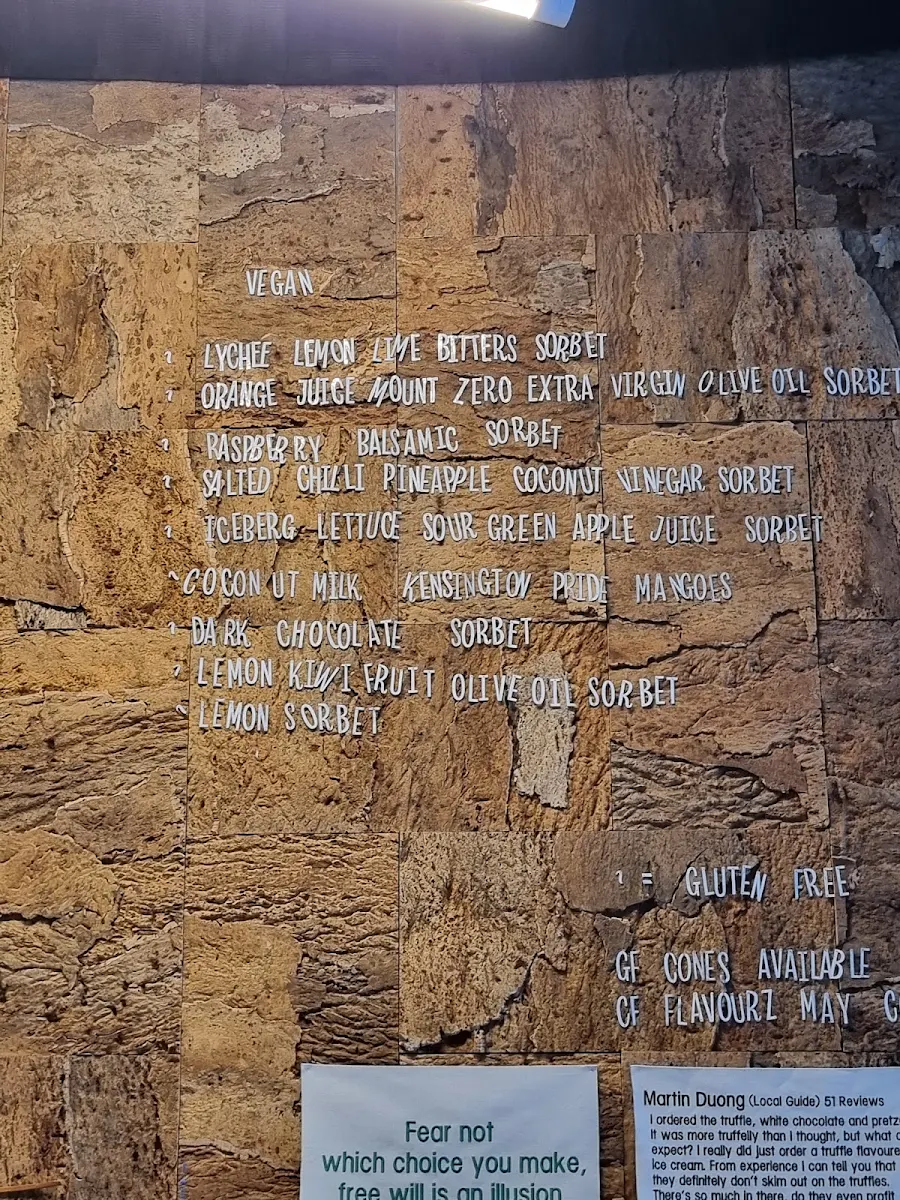 VEGAN
~ LYCHEE LEMON LIME BITTERS SORBET
~ ORANGE JUICE MOUNT ZERO EXTRA VIRGIN OLIVE OIL SORBET
~ RASPBERRY BALSAMIC SORBET
~ SALTED CHILLI PINEAPPLE COCONUT VINEGAR SORBET
~ ICEBERG LETTUCE SOUR GREEN APPLE JUICE SORBET
~ COCONUT MILK KENSINGTON PRIDE MANGOES
~ DARK CHOCOLATE SORBET
~ LEMON KIWI FRUIT OLIVE OIL SORBET
~ LEMON SORBET
~ = GLUTEN FREE
GF CONES AVAILABLE
GF FLAVOURZ MAY
Fear not
which choice you make,
free will is an illusion
Martin Duong (Local Guide) 51 Reviews
I ordered the truffle, white chocolate and
It was more truffelly than I thought, but what
expect? I really did just order a truffle
ice cream. From experience I can tell you that
they definitely don't skim out on the truffles.
There's so much in there, do they even profit